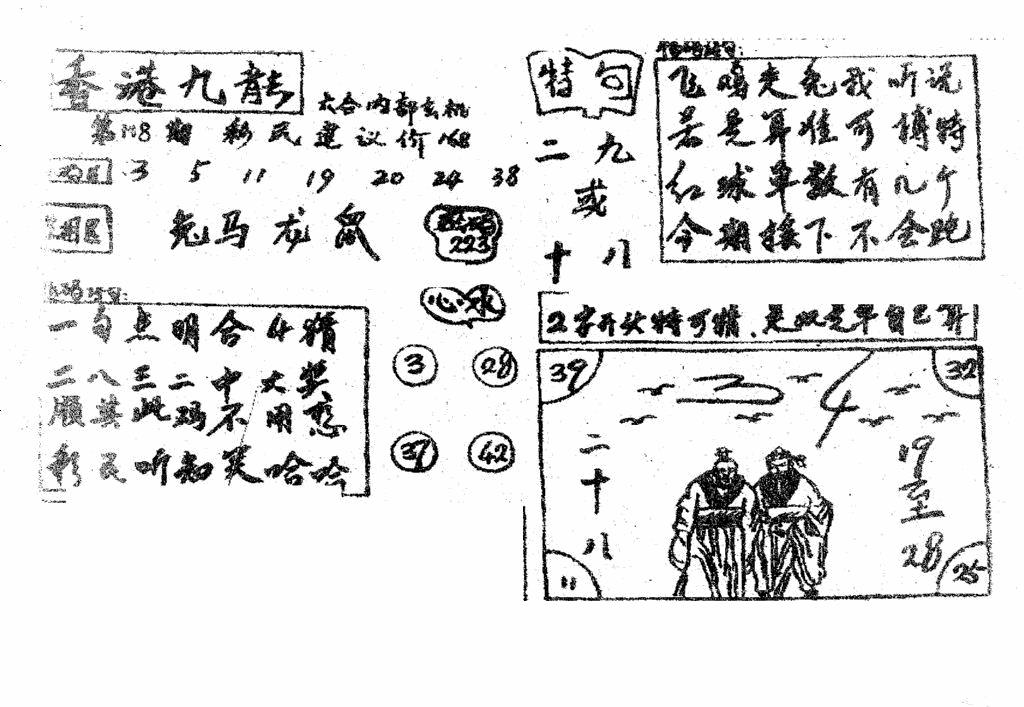 香港九龍
六合内部玄机
第118期 彩民建议价168
3 5 11 19 20 24 38
兔马龙鼠
223
一句点明合4猜
二八三二中大奖
顺其此玛不用愁
彩民听知笑哈哈
心水
3 28
39 42
特句
二九
或
十八
飞鸣走兔我听说
若是算准可搏特
红球单数有几个
今期接下不会跑
2字开头特可猜.是双是单自己算
39 32
二十八
19至28
11 25